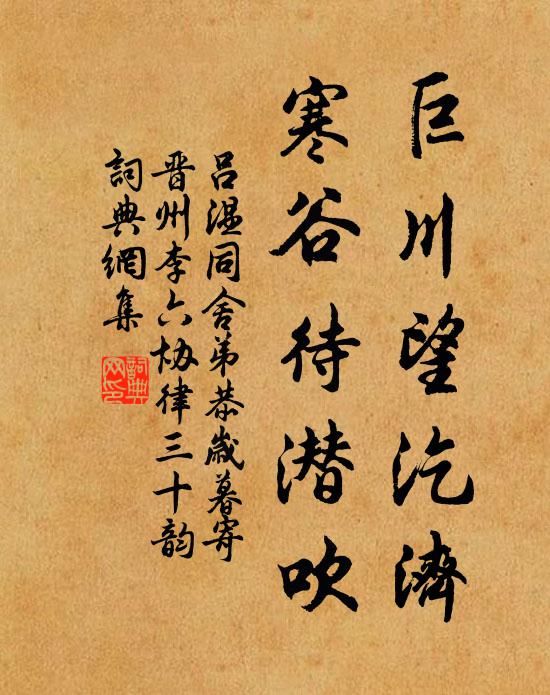 巨川望汔濟
寒谷待潜吹
吕温同舍弟恭歲暮寄
晋州李六协律三十韵
詞典網集
詞典网印